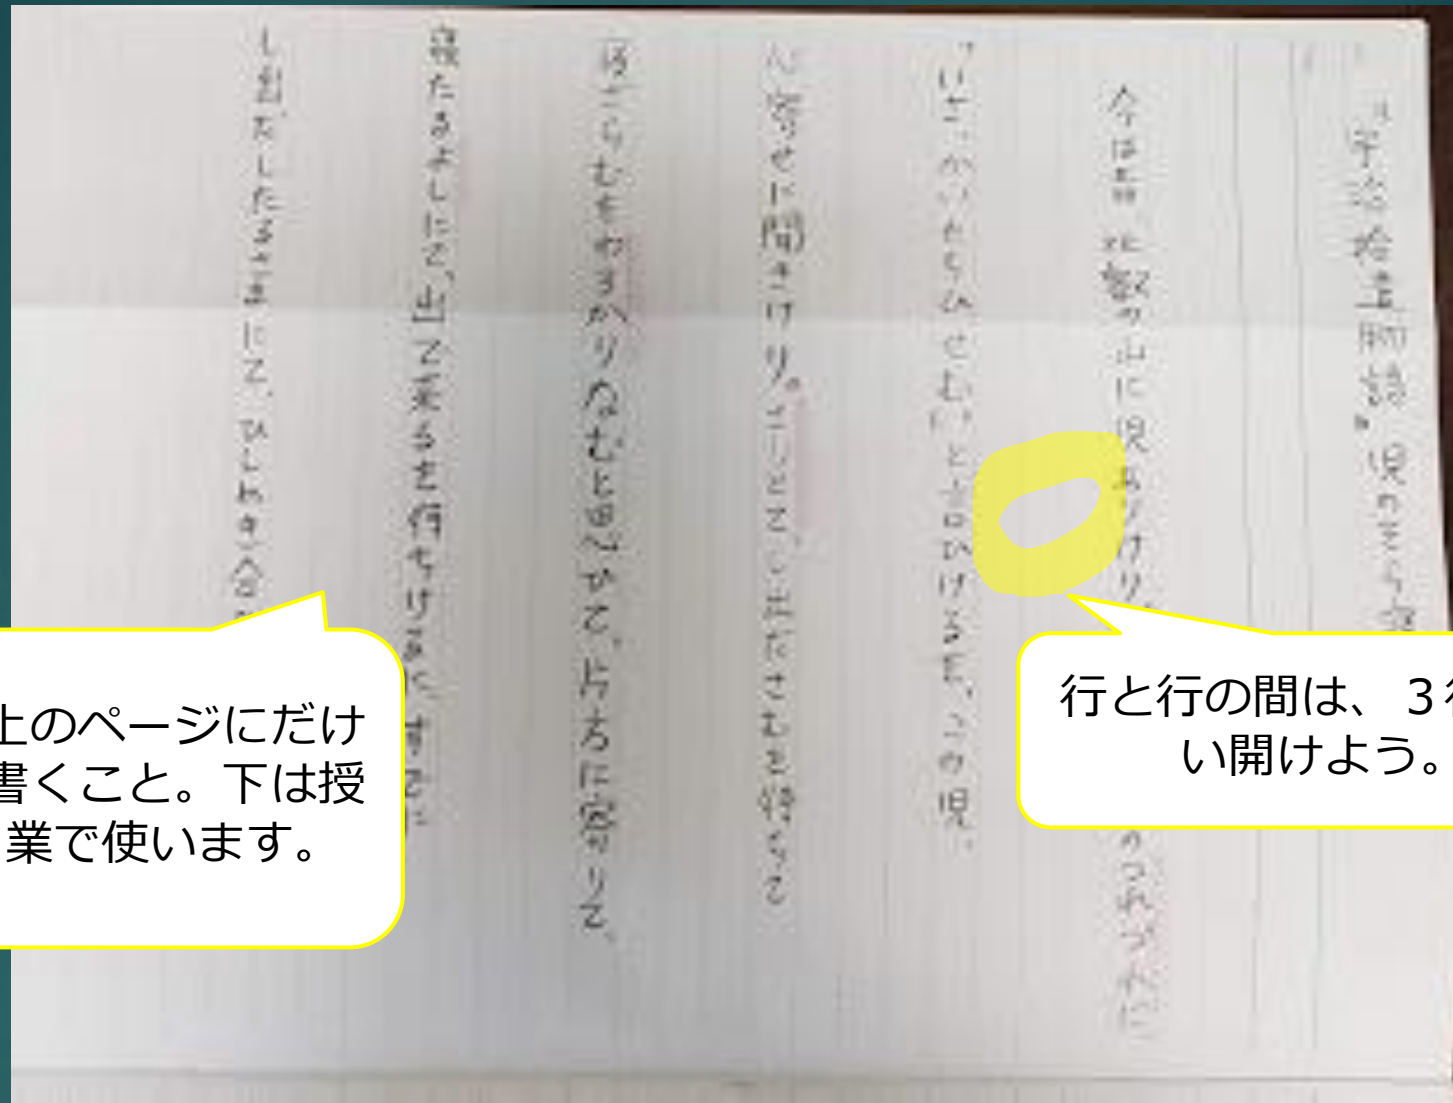 『宇治拾遺物語』児のそら寝
今は昔、比叡の山に児ありけり。 のつれづれに
「いざ、かいもちひせむ。」と言ひけるを、この児、
心寄せに聞きけり。さりとて、し出ださむを待ちて
寝ざらむもわろかりなむと思ひて、片方に寄りて、
寝たるよしにて、出で来るを待ちけるに、すでに
し出だしたるさまにて、ひしめき合ひ
行と行の間は、３行
い開けよう。
上のページにだけ
書くこと。下は授
業で使います。